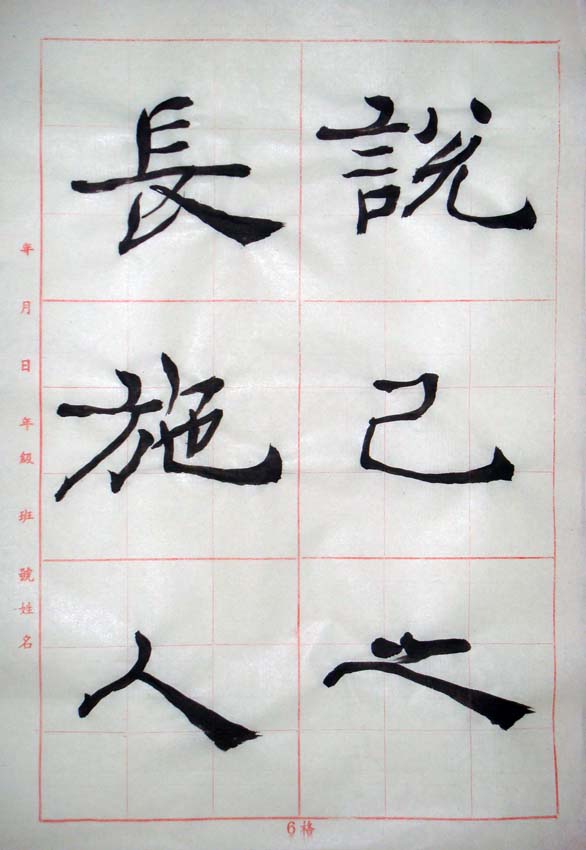 說己之
長施人
年月日年級班號姓名
6格